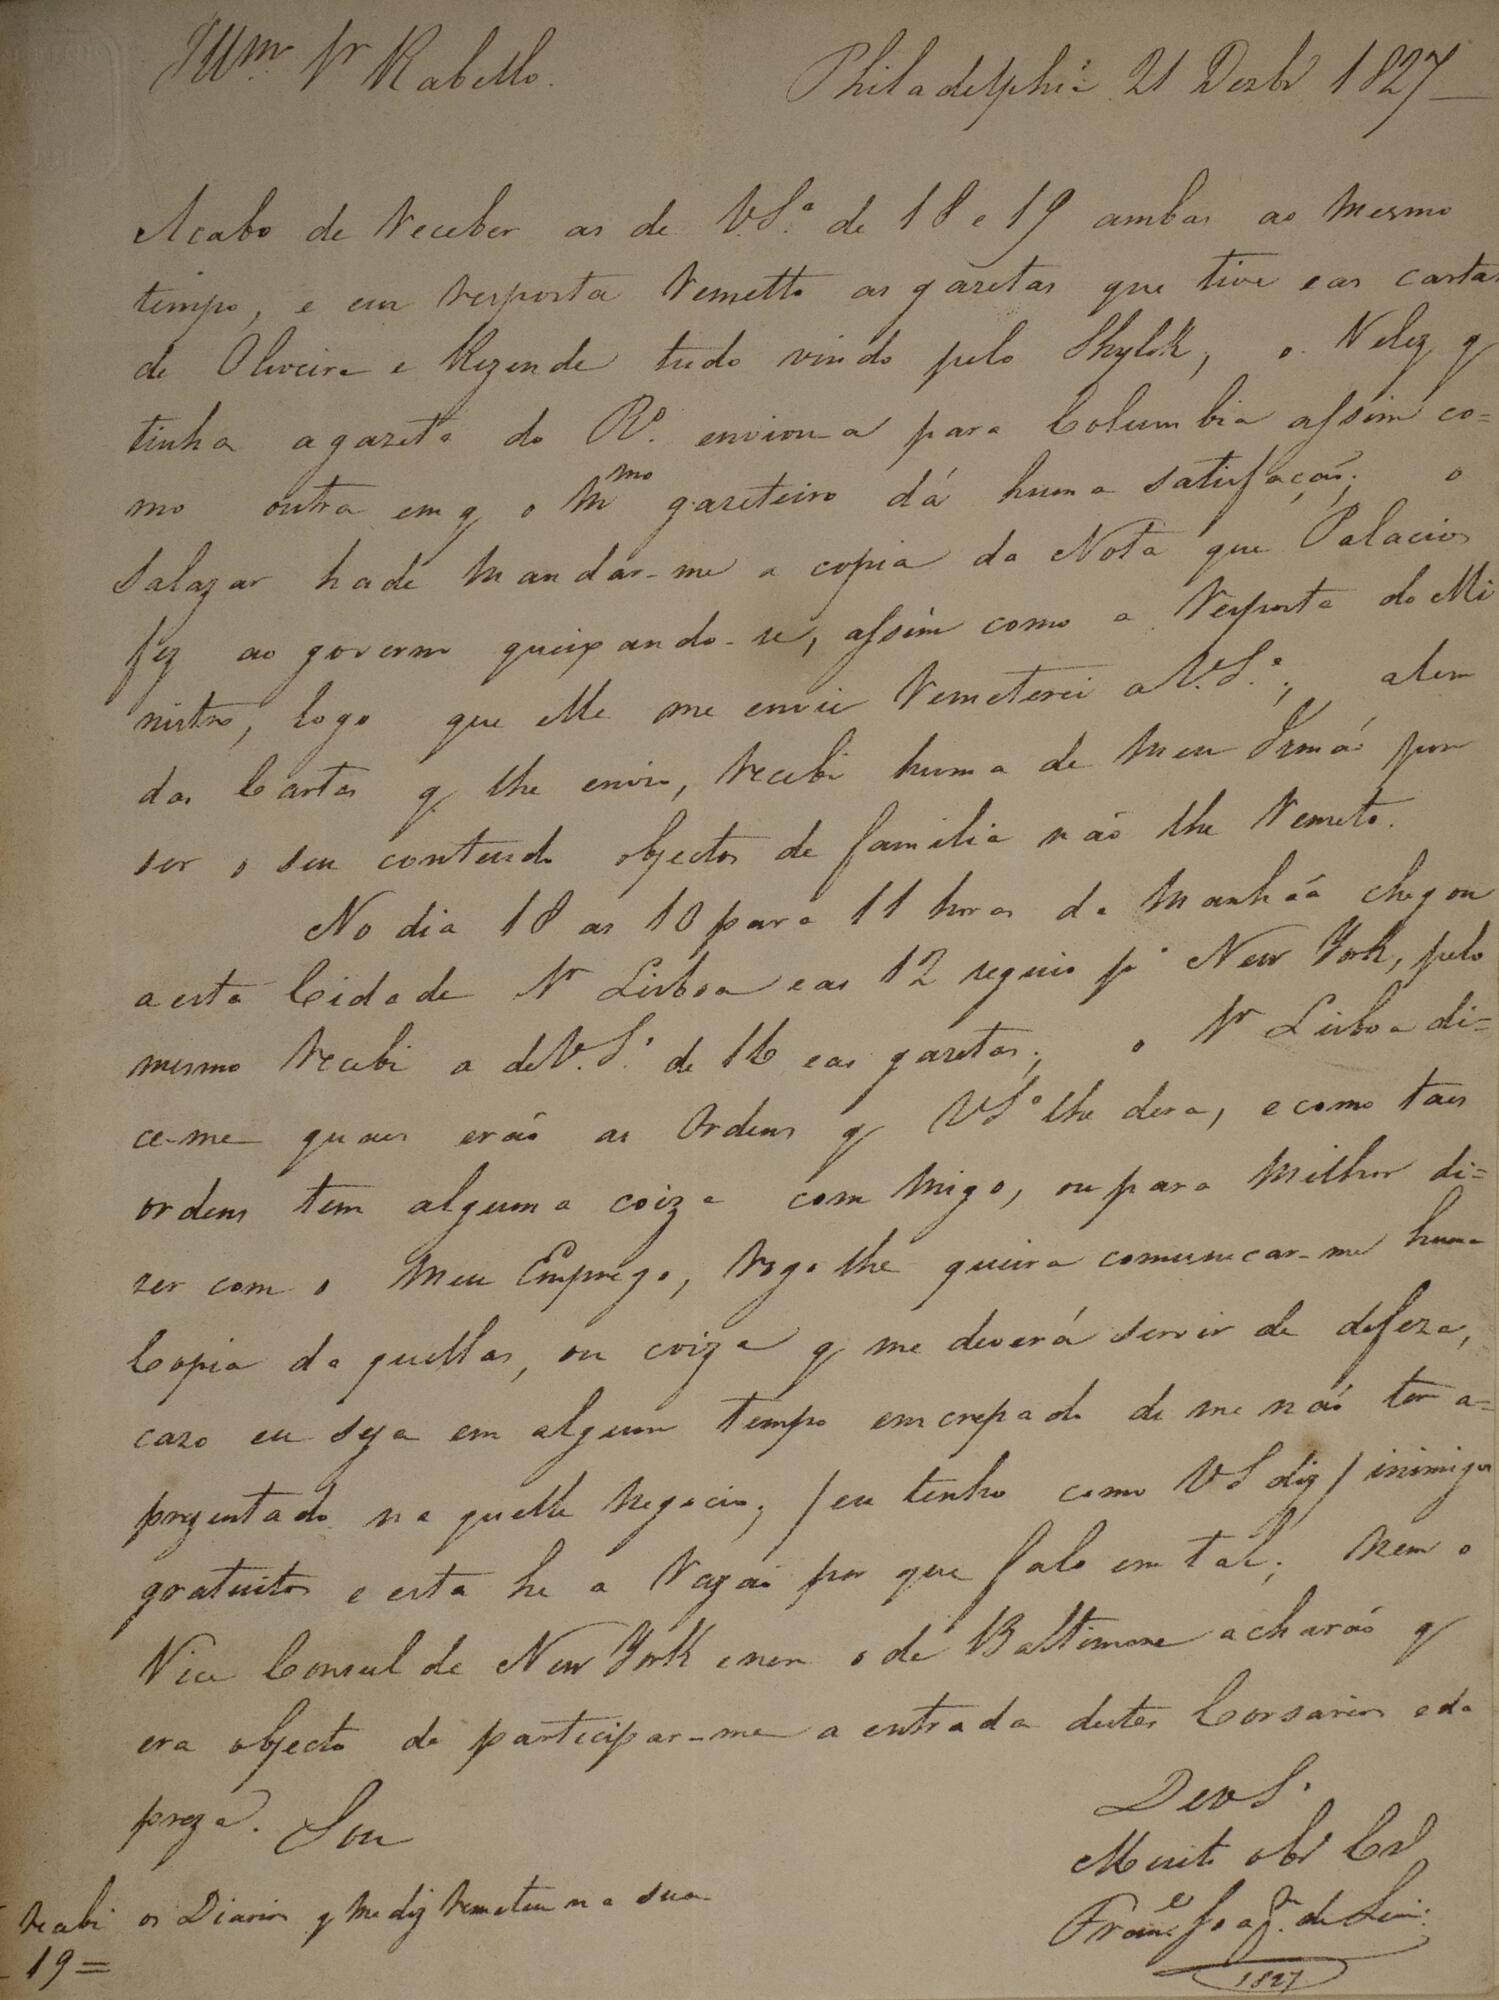 Illm.º Sr Rabello.
Philadelphiª 21 Dezbrº 1827
Acabo de receber as de V.Sª. de 18 e 19 ambas ao mesmo
tempo, e em resposta remetto as gazetas que tive e as cartas
de Oliveira e Rezende tudo vindo pelo Shylok, o Velez q
tinha a gazeta do Rº. enviou-a para Columbia assim co=
mo outra em q o mmo gazeteiro dá huma satisfação; o
Salazar hade mandar-me a copia da Nota que Palacios
fez ao governo queixando-se, assim como a resposta do Mi
nistro, logo que elle me envie remeterei a V.Sª.; alem
das Cartas q lhe envio, recebi huma de meu Irmão por
ser o seu conteudo objectos de familia não lhe remeto.
No dia 18 as 10 para 11 horas da manhãa chegou
a esta Cidade Sr Lisboa e as 12 seguio pª New York, pelo
mesmo recebi a de V.Sª. de 16 e as gazetas; o Sr Lisboa di=
ce-me quaes erão as ordens q VSª lhe dera, e como taes
ordens tem alguma coiza com migo, ou para milhor di=
zer com o meu Emprego, rogo lhe queira comunecar-me huma
Copia da quellas, ou coiza q me deverá servir de defeza,
cazo eu seja em algum tempo encrepado de me não ter a=
prezentado na quelle negocio; /eu tenho como VS diz/ inimigos
gratuitos e esta he a razão por que falo em tal; nem o
Vice Consul de New York e nem o de Baltimore acharão q
era objecto de participar-me a entrada destes Corsarios e da
preza. Sou
De VSª
Muito obrº Crº
Franco Joaqm. de Lima
1827
recebi os Diarios q me diz remeteu na sua
19=